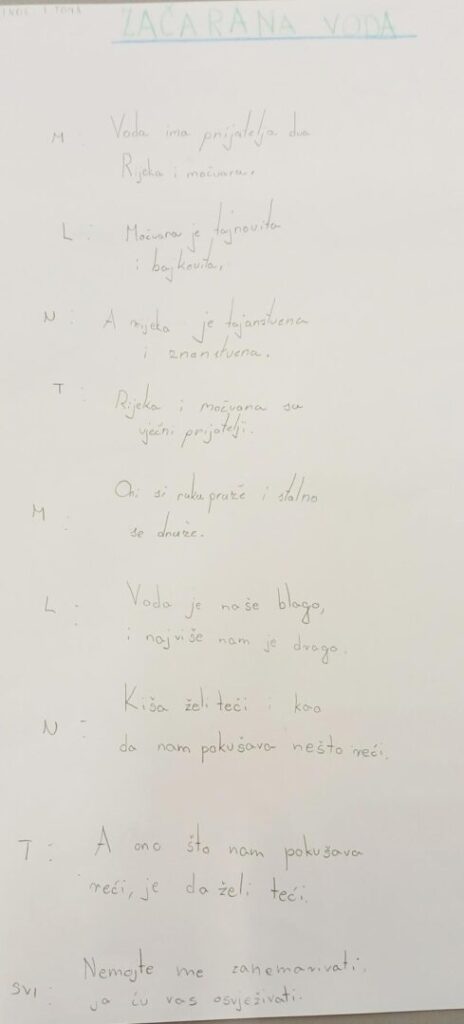 I TONA
ZAČARANA VODA
M Voda ima prijatelja dva
Rijeka i močvara.
L : Močvara je tajnovita
i bajkovita,
N : A rijeka je tajanstvena
i znanstvena.
T : Rijeka i močvara su
vječni prijatelji.
M : Oni si ruku pruže i stalno
se druže.
L : Voda je naše blago,
i najviše nam je drago.
N : Kiša želi teći i kao
da nam pokušava nešto reći.
T : A ono što nam pokušava
reći, je da želi teći.
SVI : Nemojte me zanemarivati,
ja ću vas osvježivati.